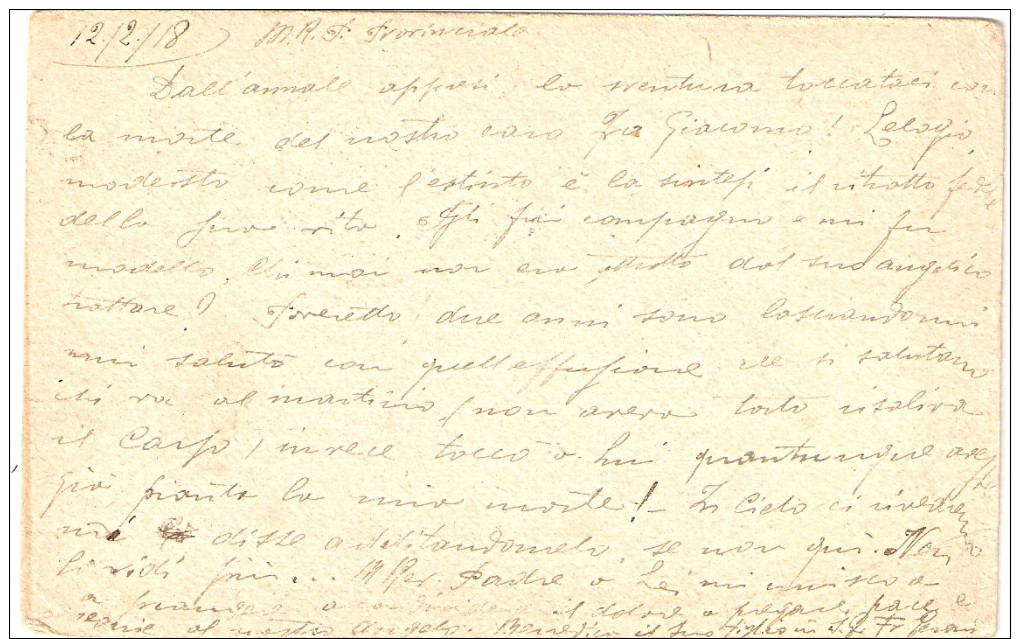 12/2/18 M. R. P. Provinciale
Dall'annale appresi la sventura toccataci con
la morte del nostro caro Fra Giacomo! L'elogio,
modesto come l'estinto è la sintesi il ritratto fedele
della sua vita. Gli fui compagno e mi fu
modello. Chi mai non era attratto dal suo angelico
trattare? due anni sono lasciandomi
mi salutò con quell'effusione che si salutan
chi va al martirio, (non aveva torto risaliva
il Carso) invece toccò a lui quantunque avesse
già pianto la mia morte! - In Cielo ci rivedremo
mi disse additandomelo, se non qui. Non
lo vidi più... M. Rev. Padre a Lei mi unisco a
piangere a condividere il dolore a pregare pace e
requie al nostro Angelo. Benedica il suo figlio in S. F. Fr